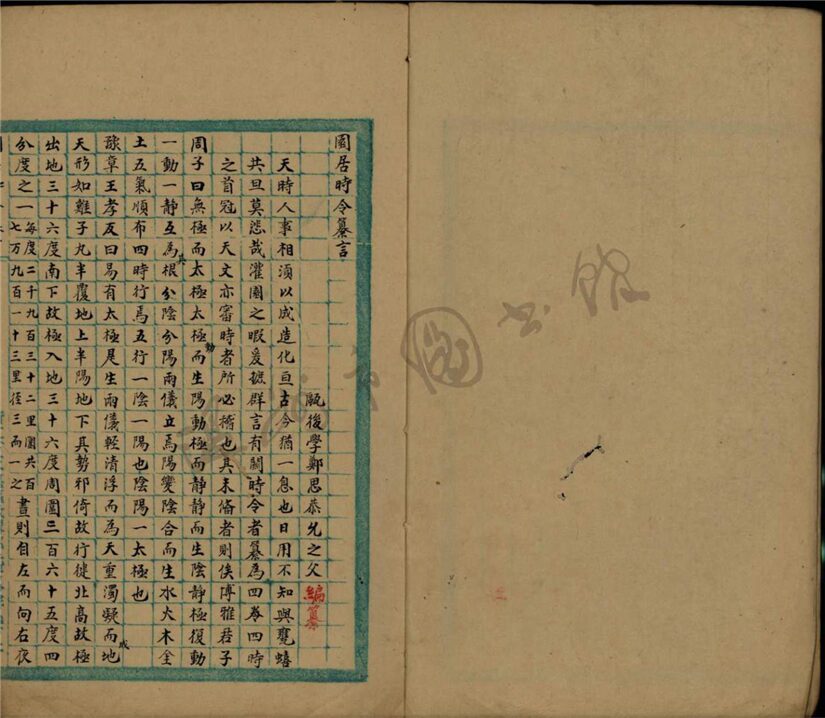 園居時令纂言
甌後學鄭思恭允之父編纂
天時人事相須以成造化亘古今猶一息也日用不知與甕蟢
共旦莫悲哉灌園之暇爰摭群言有關時令者纂為四卷四時
之首冠以天文亦審時者所必稽也其未備者則俟博雅君子
周子曰無極而太極太極動而生陽動極而靜靜而生陰靜極復動
一動一靜互為其根分陰分陽兩儀立焉陽變陰合而生水火木金
土五氣順布四時行焉五行一陰一陽也陰陽一太極也
豫章王孝友曰易有太極是生兩儀輕清浮而為天重濁凝而成地
天形如雞子九半覆地上半陽地下其勢邪倚故行徙北高故極
出地三十六度南下故極入地三十六度周圍三百六十五度四
分度之一每度二千九百三十二里圍共百七万九百一十三里徑三而一之晝則自左而向右夜